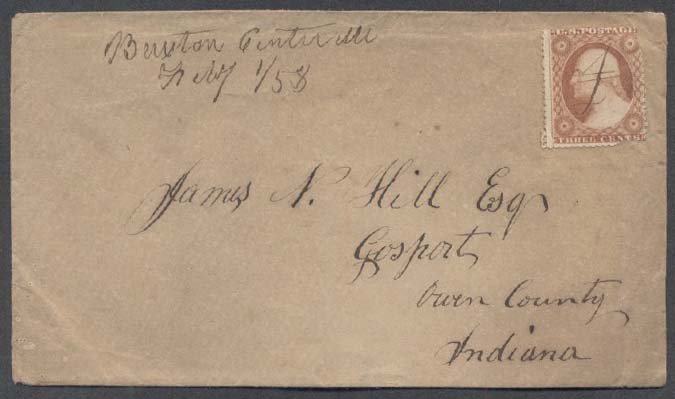 Buxton Centre Me
Feby 1/58
U.S. POSTAGE
THREE CENTS
James N. Hill Esq
Gosport
Owen County
Indiana